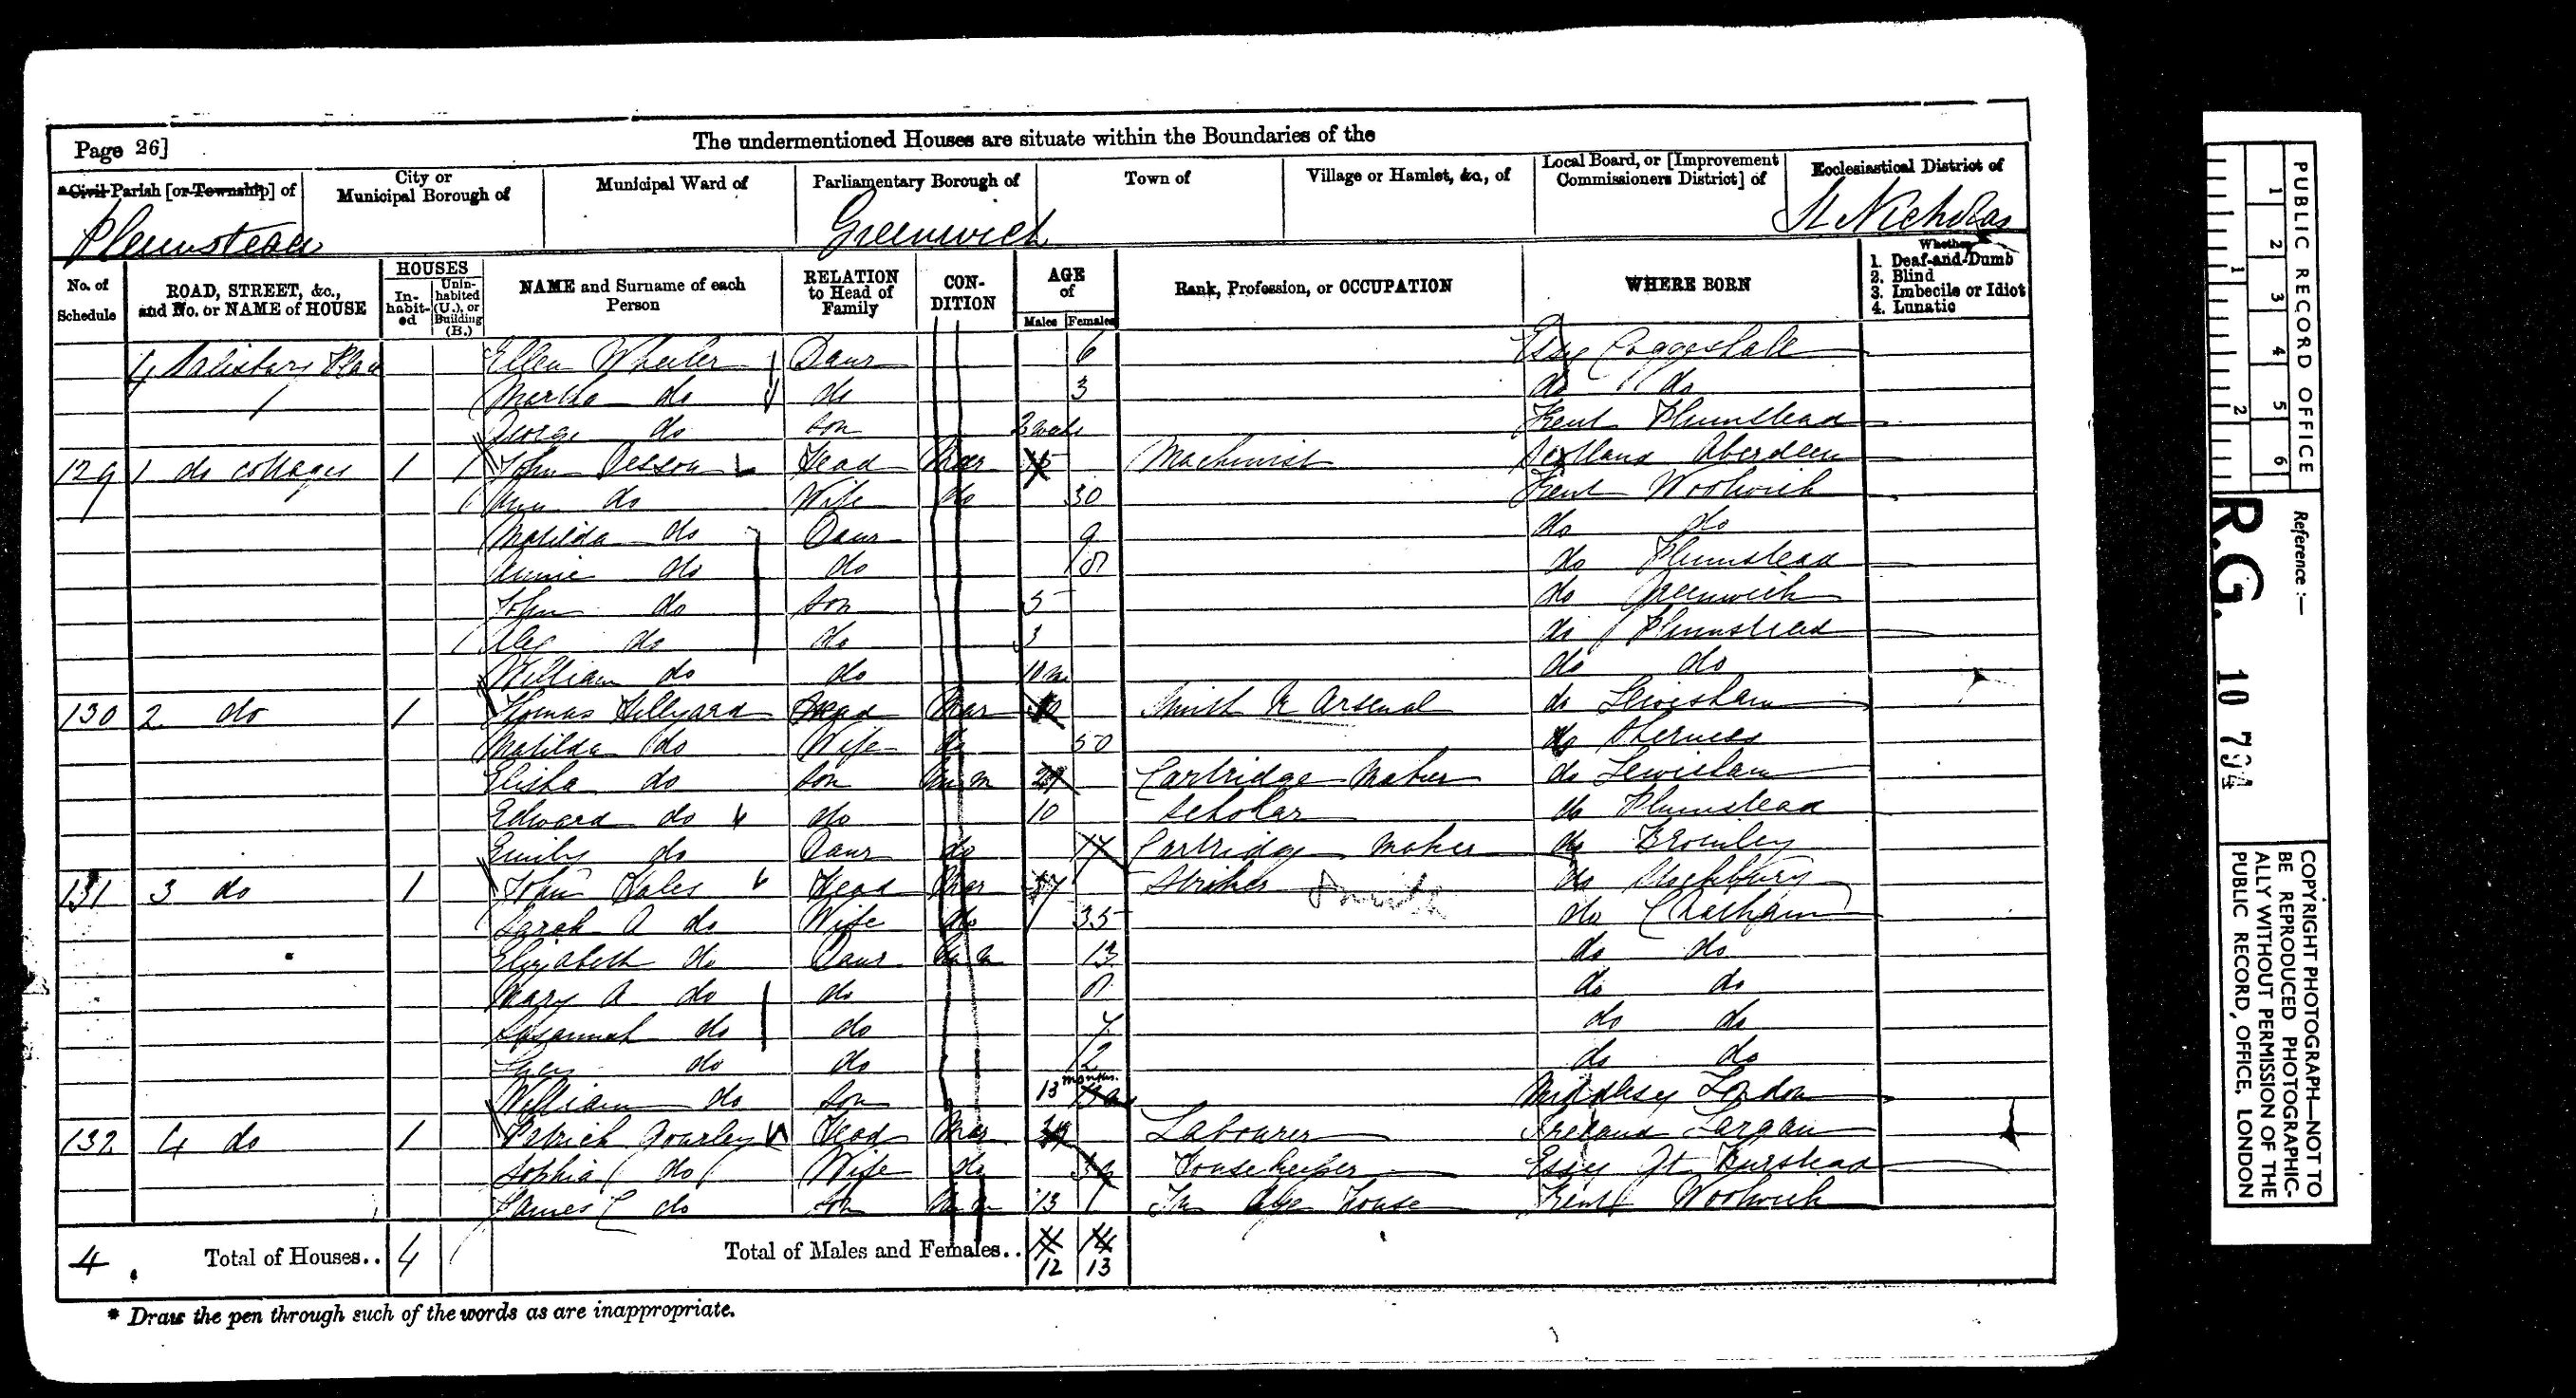 Page 26]
The undermentioned Houses are situate within the Boundaries of the
* Civil Parish [or Township] of
City or Municipal Borough of
Municipal Ward of
Parliamentary Borough of
Town of
Village or Hamlet, &c., of
Local Board, or [Improvement Commissioners District] of
Ecclesiastical District of
Plumstead
Greenwich
St Nicholas
No. of Schedule
ROAD, STREET, &c., and No. or NAME of HOUSE
HOUSES
In-habit-ed
Unin-habited (U.), or Building (B.)
NAME and Surname of each Person
RELATION to Head of Family
CON-DITION
AGE of
Males
Females
Rank, Profession, or OCCUPATION
WHERE BORN
Whether
1. Deaf-and-Dumb
2. Blind
3. Imbecile or Idiot
4. Lunatic
4 Salisbury Place Ellen Wheeler Daur 6 Essex Coggeshall
Martha do do 3 do do
George do son Kent Plumstead
129 1 do cottages 1 John Head Mar Machinist Scotland Aberdeen
Ann do Wife do 30 Kent Woolwich
Matilda do Daur 9 do do
Annie do do 8 do Plumstead
John do son 5 do Greenwich
Alex do do 3 do Plumstead
William do do 10 m do do
130 2 do 1 Thomas Hillyard Head Mar Smith R Arsenal do Lewisham
Matilda do Wife do 50 do Sherness
Elisha do son Un m Cartridge Maker do Lewisham
Edward do do 10 scholar do Plumstead
Emily do Daur do 17 Cartridge Maker do Bromley
131 3 do 1 John Hales Head Mar 37 Striker Smith do
Sarah A do Wife do 35 do Chatham
Elizabeth do Daur Un m 13 do do
Mary A do do 8 do do
Susannah do do 7 do do
Lucy do do 2 do do
William do son 13 months Middlesex London
132 4 do 1 Patrick Gourley Head Mar Labourer Ireland Largan
Sophia do Wife do Housekeeper Essex Gt Burstead
James C do son Un m 13 Kent Woolwich
4 Total of Houses.. 4 Total of Males and Females.. 12 13
* Draw the pen through such of the words as are inappropriate.
PUBLIC RECORD OFFICE
1 2 3 4 5 6
1 2
Reference :-
R.G. 10 794
COPYRIGHT PHOTOGRAPH—NOT TO
BE REPRODUCED PHOTOGRAPHIC-
ALLY WITHOUT PERMISSION OF THE
PUBLIC RECORD OFFICE, LONDON